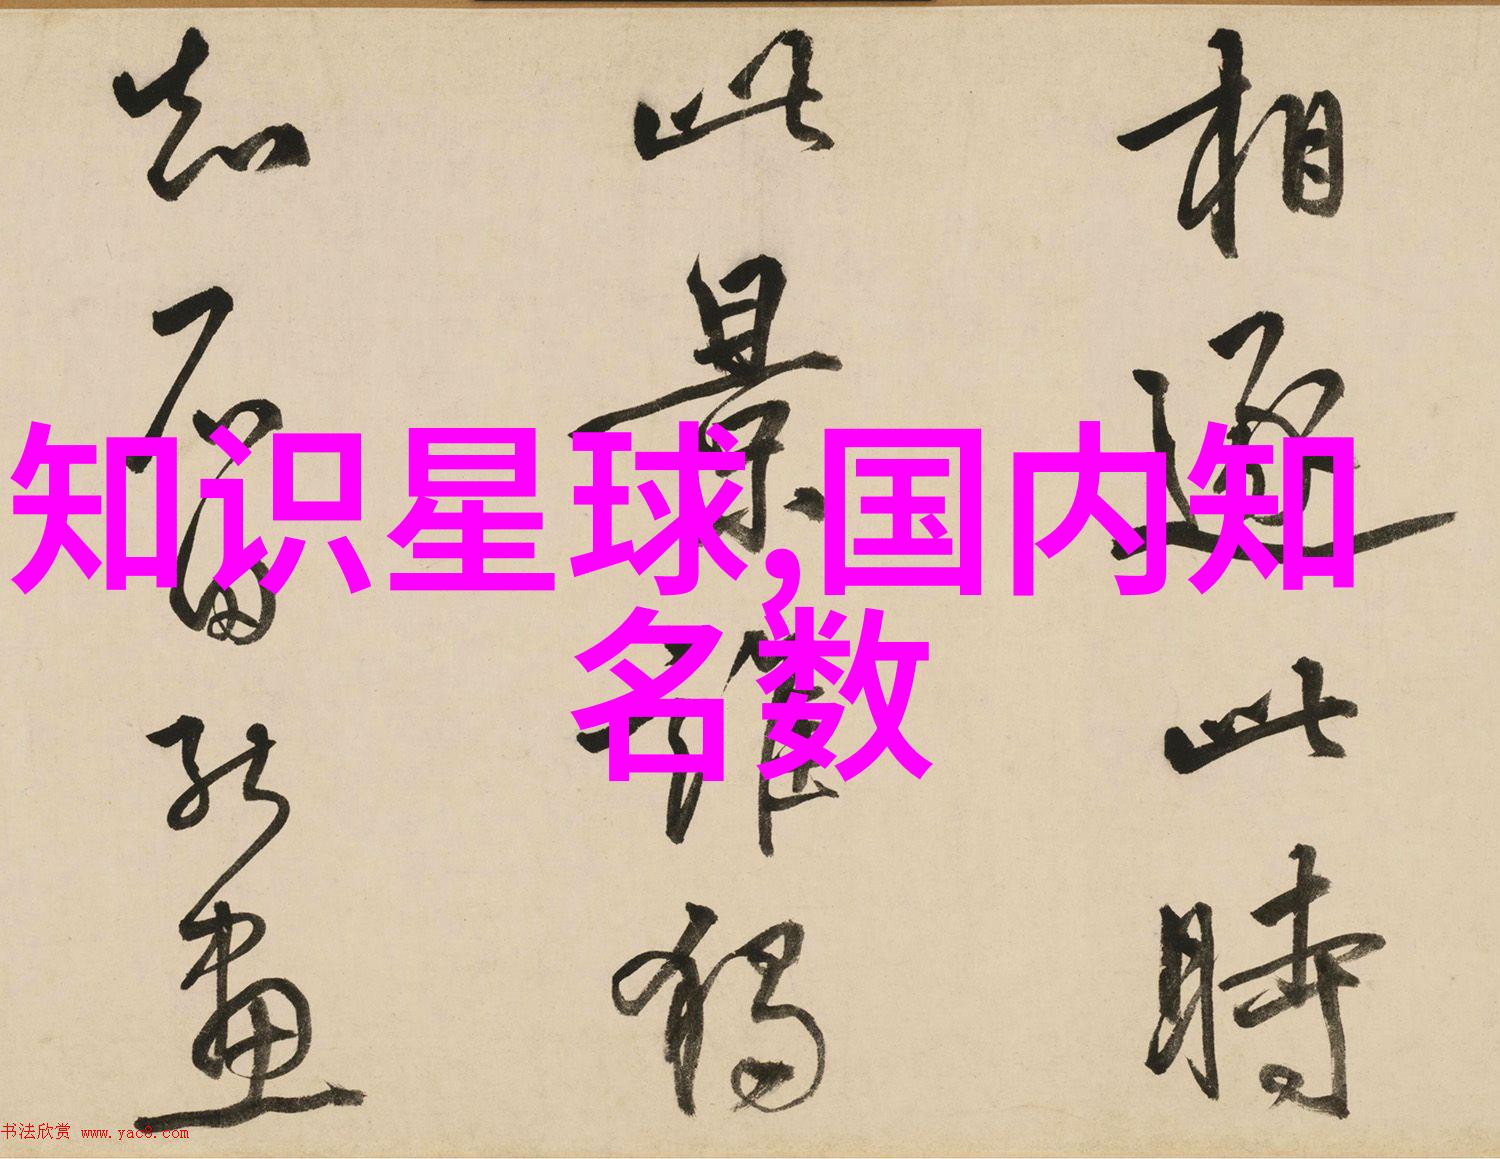 相逐此時
此景誰獨
知石田能畫
知识星球,国内知
名数
书法欣赏 www.yac8.com